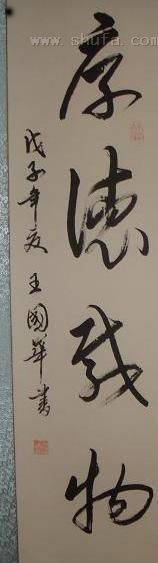 厚德载物
戊子年夏王國華書
www.shufa.com